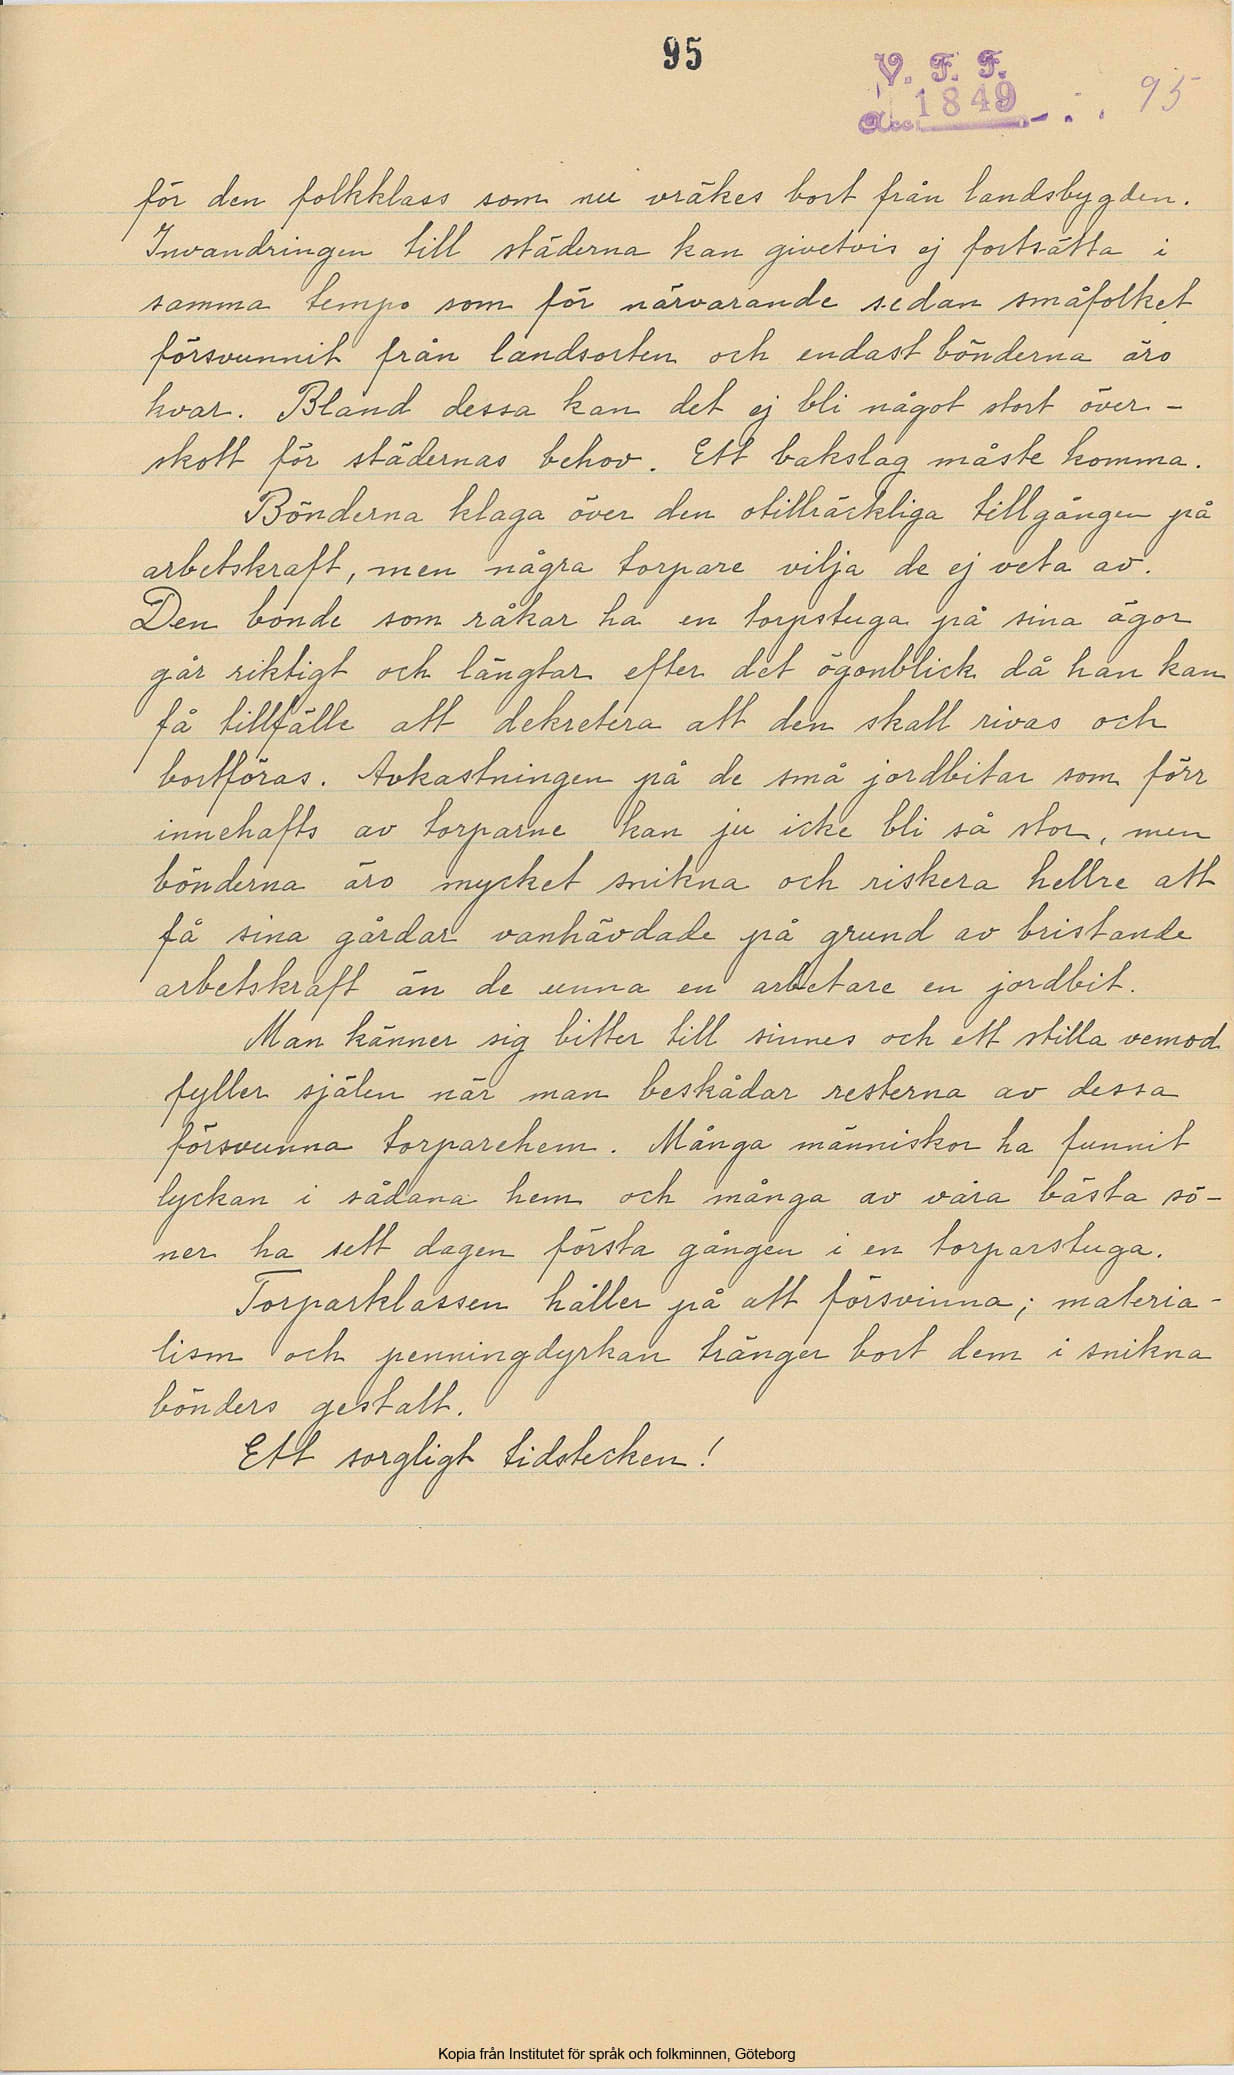 95
V. F. F.
Acc. 1849
95
för den folkklass som nu vräkes bort från landsbygden.
Invandringen till städerna kan givetvis ej fortsätta i
samma tempo som för närvarande sedan småfolket
försvunnit från landsorten och endast bönderna äro
kvar. Bland dessa kan det ej bli något stort över-
skott för städernas behov. Ett bakslag måste komma.
Bönderna klaga över den otillräckliga tillgången på
arbetskraft, men några torpare vilja de ej veta av.
Den bonde som råkar ha en torpstuga på sina ägor
går riktigt och längtar efter det ögonblick då han kan
få tillfälle att dekretera att den skall rivas och
bortföras. Avkastningen på de små jordbitar som förr
innehafts av torparne kan ju icke bli så stor, men
bönderna äro mycket snikna och riskera hellre att
få sina gårdar vanhävdade på grund av bristande
arbetskraft än de unna en arbetare en jordbit.
Man känner sig bitter till sinnes och ett stilla vemod
fyller själen när man beskådar resterna av dessa
försvunna torparehem. Många människor ha funnit
lyckan i sådana hem och många av våra bästa sö-
ner ha sett dagen första gången i en torparstuga.
Torparklassen håller på att försvinna; materia-
lism och penningdyrkan tränger bort dem i snikna
bönders gestalt.
Ett sorgligt tidstecken!
Kopia från Institutet för språk och folkminnen, Göteborg